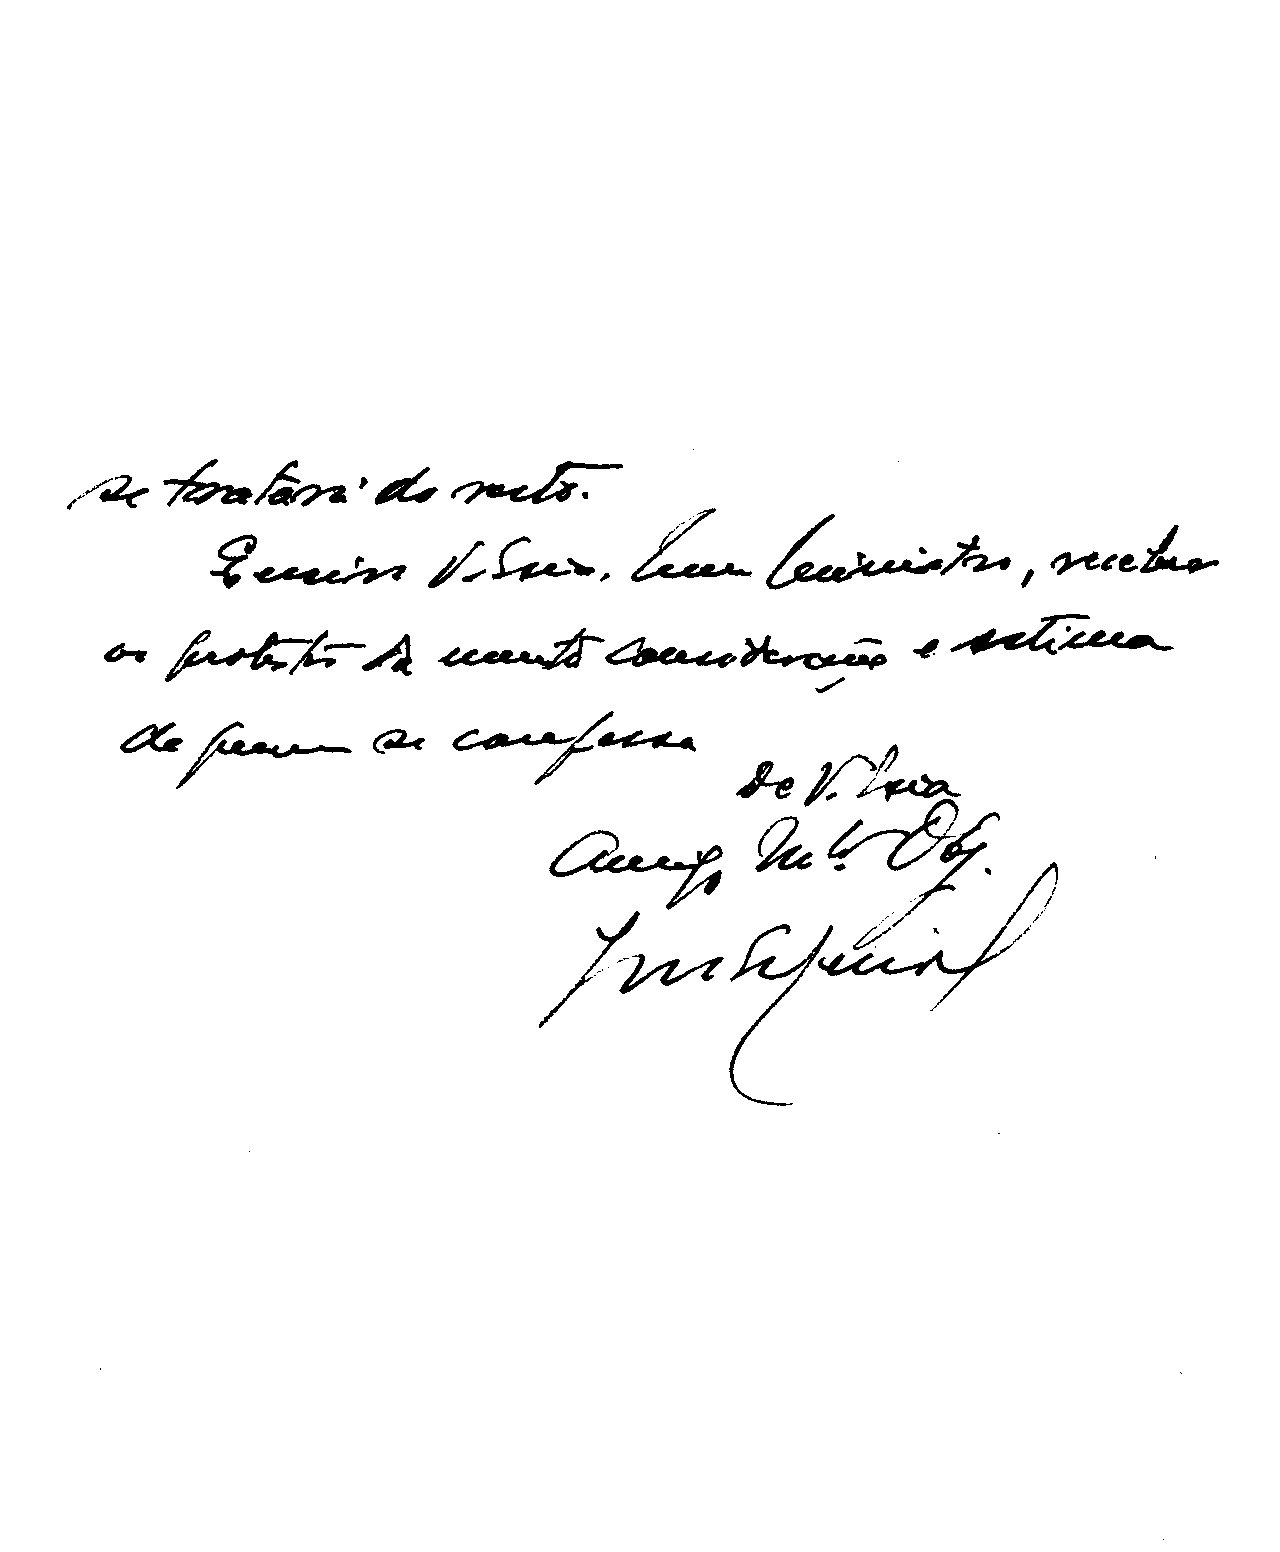 se tratará do resto.
V. Excia. Senhor Ministro, receber
os protestos da muita consideração e estima
de quem se confessa
De V. Excia
Amigo Mto. Obg.